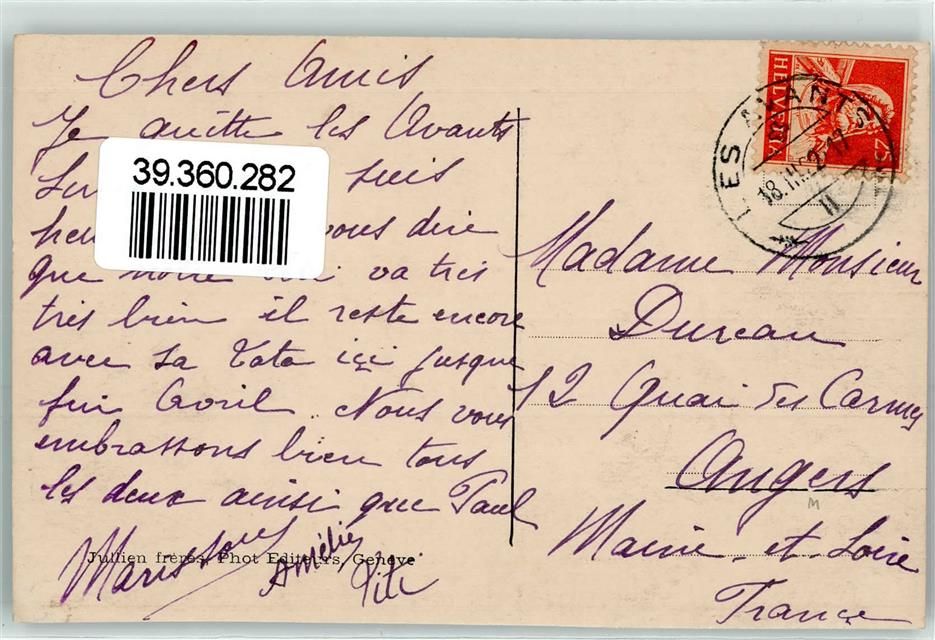 Chers Amis
Je quitte les Avants
suis
vous dire
que notre va très
très bien il reste encore
avec sa Tata içi jusque
fin Avril. Nous vous
embrassons bien tous
les deux ainsi que Paul
Amélie
Titi
Jullien frères, Phot Editeurs, Genève
39.360.282
HELVETIA
25
LES AVANTS
18.III.
II
Madame Monsieur
Dureau
12 Quai des Carmes
Angers
M
Maine et Loire
France